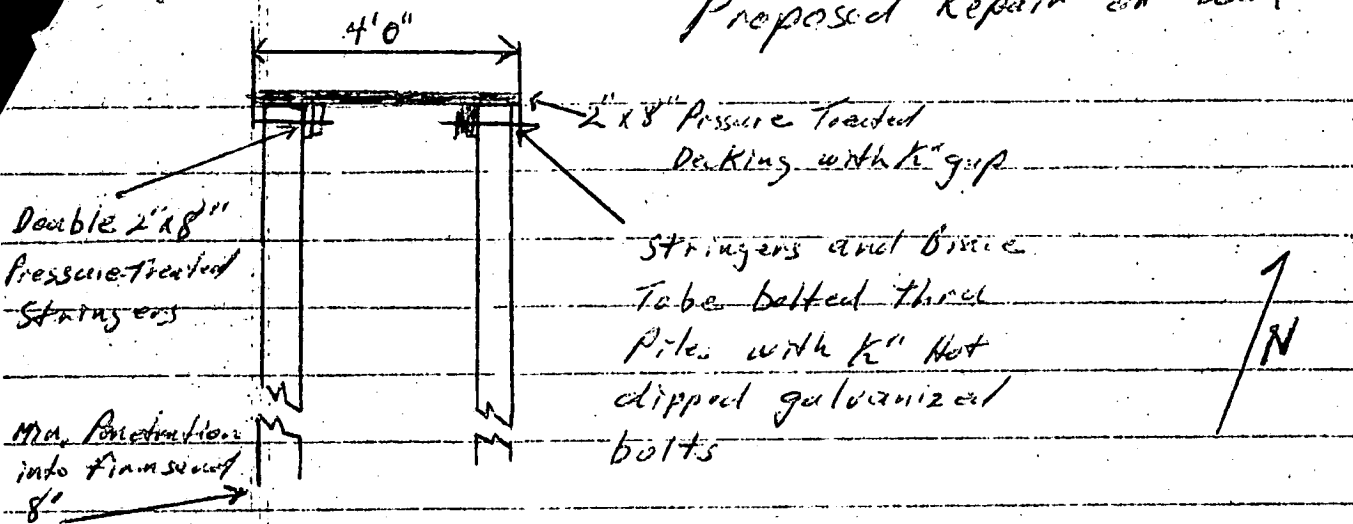 Proposed Repair on
4'0"
2" x 8" Pressure Treated
Decking with ½" gap
Double 2" x 8"
Pressure-Treated
Stringers
Stringers and Brace
To be bolted thru
Piles with ½" Hot
dipped galvanized
bolts
N
Min. Penetration
into firm sand
8'